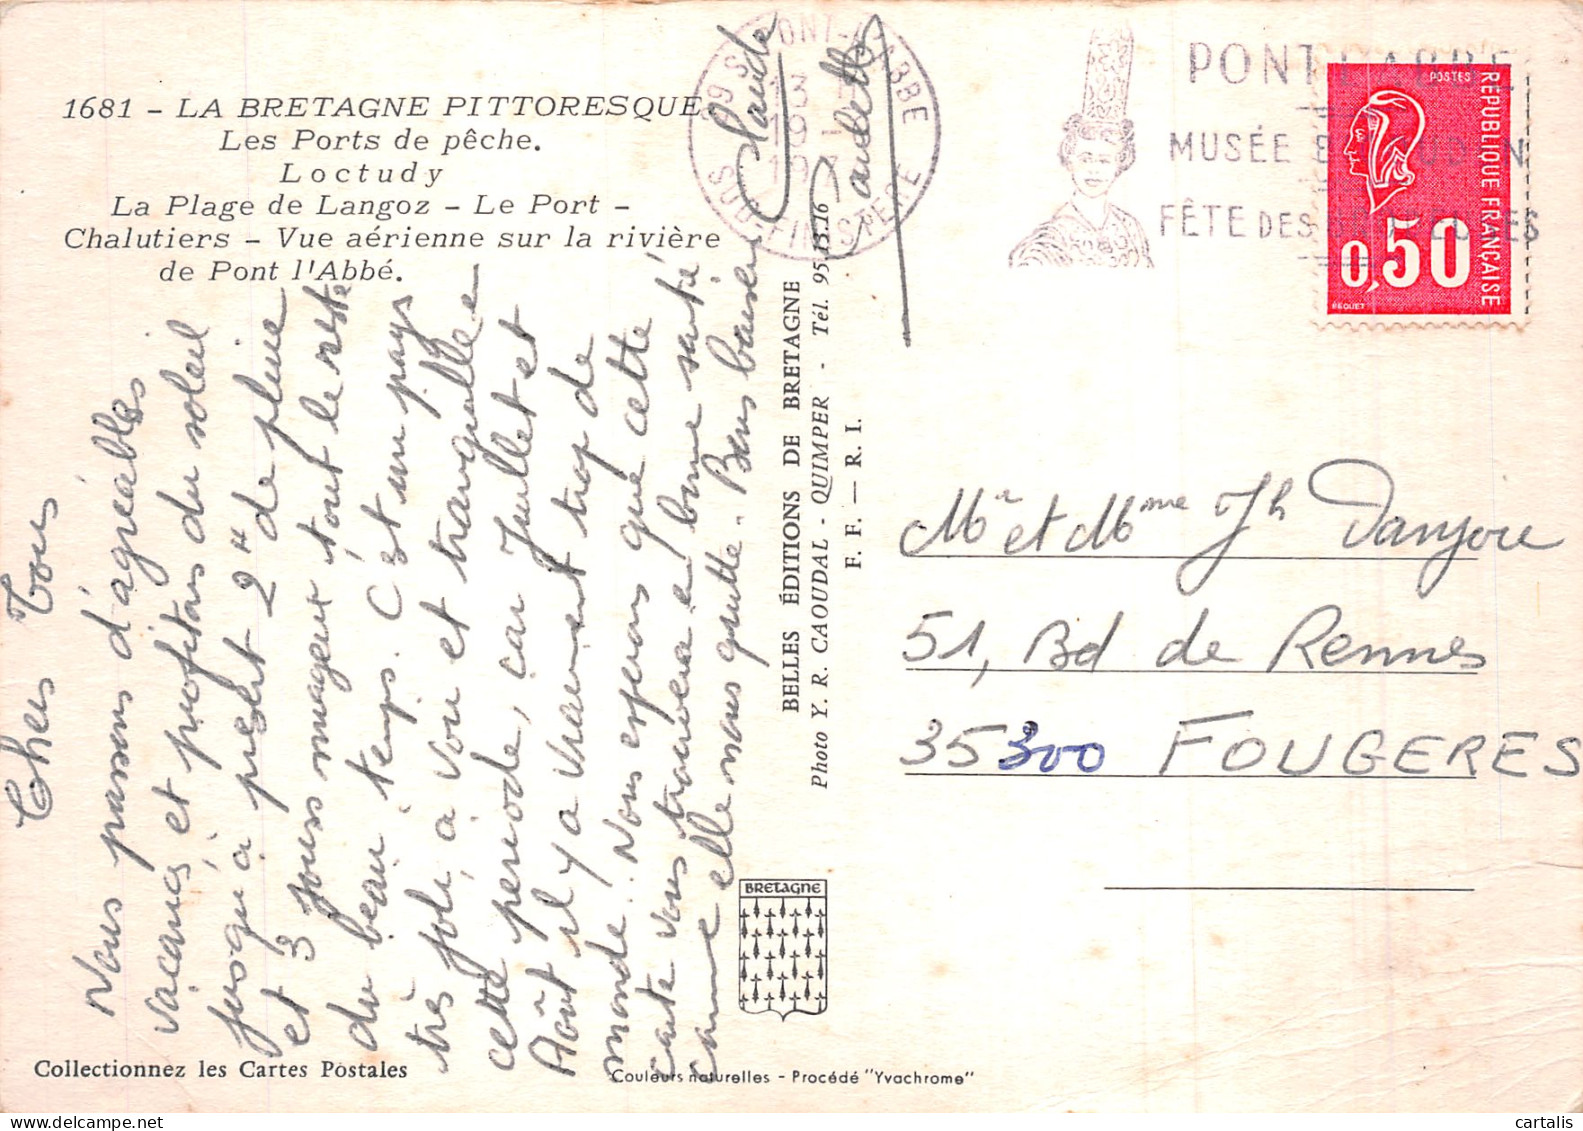 1681 - LA BRETAGNE PITTORESQUE
Les Ports de pêche.
Loctudy
La Plage de Langoz - Le Port -
Chalutiers - Vue aérienne sur la rivière
de Pont l'Abbé.
Chers Tous
Nous passons d'agréables
vacances et profitons du soleil
jusqu'à présent 2 H de pluie
et 3 jours nuageux tout le reste
du beau temps. C'est un pays
très joli, à voir et tranquille
cette période, car Juillet et
Août il y a vraiment trop de
monde. Nous espérons que cette
carte vous trouvera en bonne santé
comme elle nous quitte. Bons baisers
Claude
Paulette
BELLES ÉDITIONS DE BRETAGNE
Photo Y. R. CAOUDAL - QUIMPER - Tél. 95.15.16
F. F. — R. I.
BRETAGNE
Collectionnez les Cartes Postales
Couleurs naturelles - Procédé "Yvachrome"
29 S PONT-L'ABBE
13
19 -
197
SUD-FINISTERE
PONT L'ABBE
MUSÉE BIGOUDEN
FÊTE DES BRODEUSES
POSTES
REPUBLIQUE FRANÇAISE
0,50
BEQUET
Mr et Mme Jh Danjou
51, Bd de Rennes
35300 FOUGERES